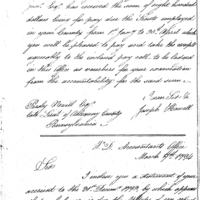 Esqr. has received the sum of eight hundred
dollars being for pay due the Scouts employed
in your County from 1st Jany to 30th April which
you will be pleased to pay and take the receipts
agreeably to the inclosed pay roll, to be lodged
in this Office as vouchers for your exoneration
from the accountability for the said sum.
I am Sir &c
Joseph Howell
Presly Nevill Esqr.
Lieut. of Allegany County
Pennsylvania
W.D. Accountants Office
March 9th
Sir
I inclose you a statement of your
account to the by which appears